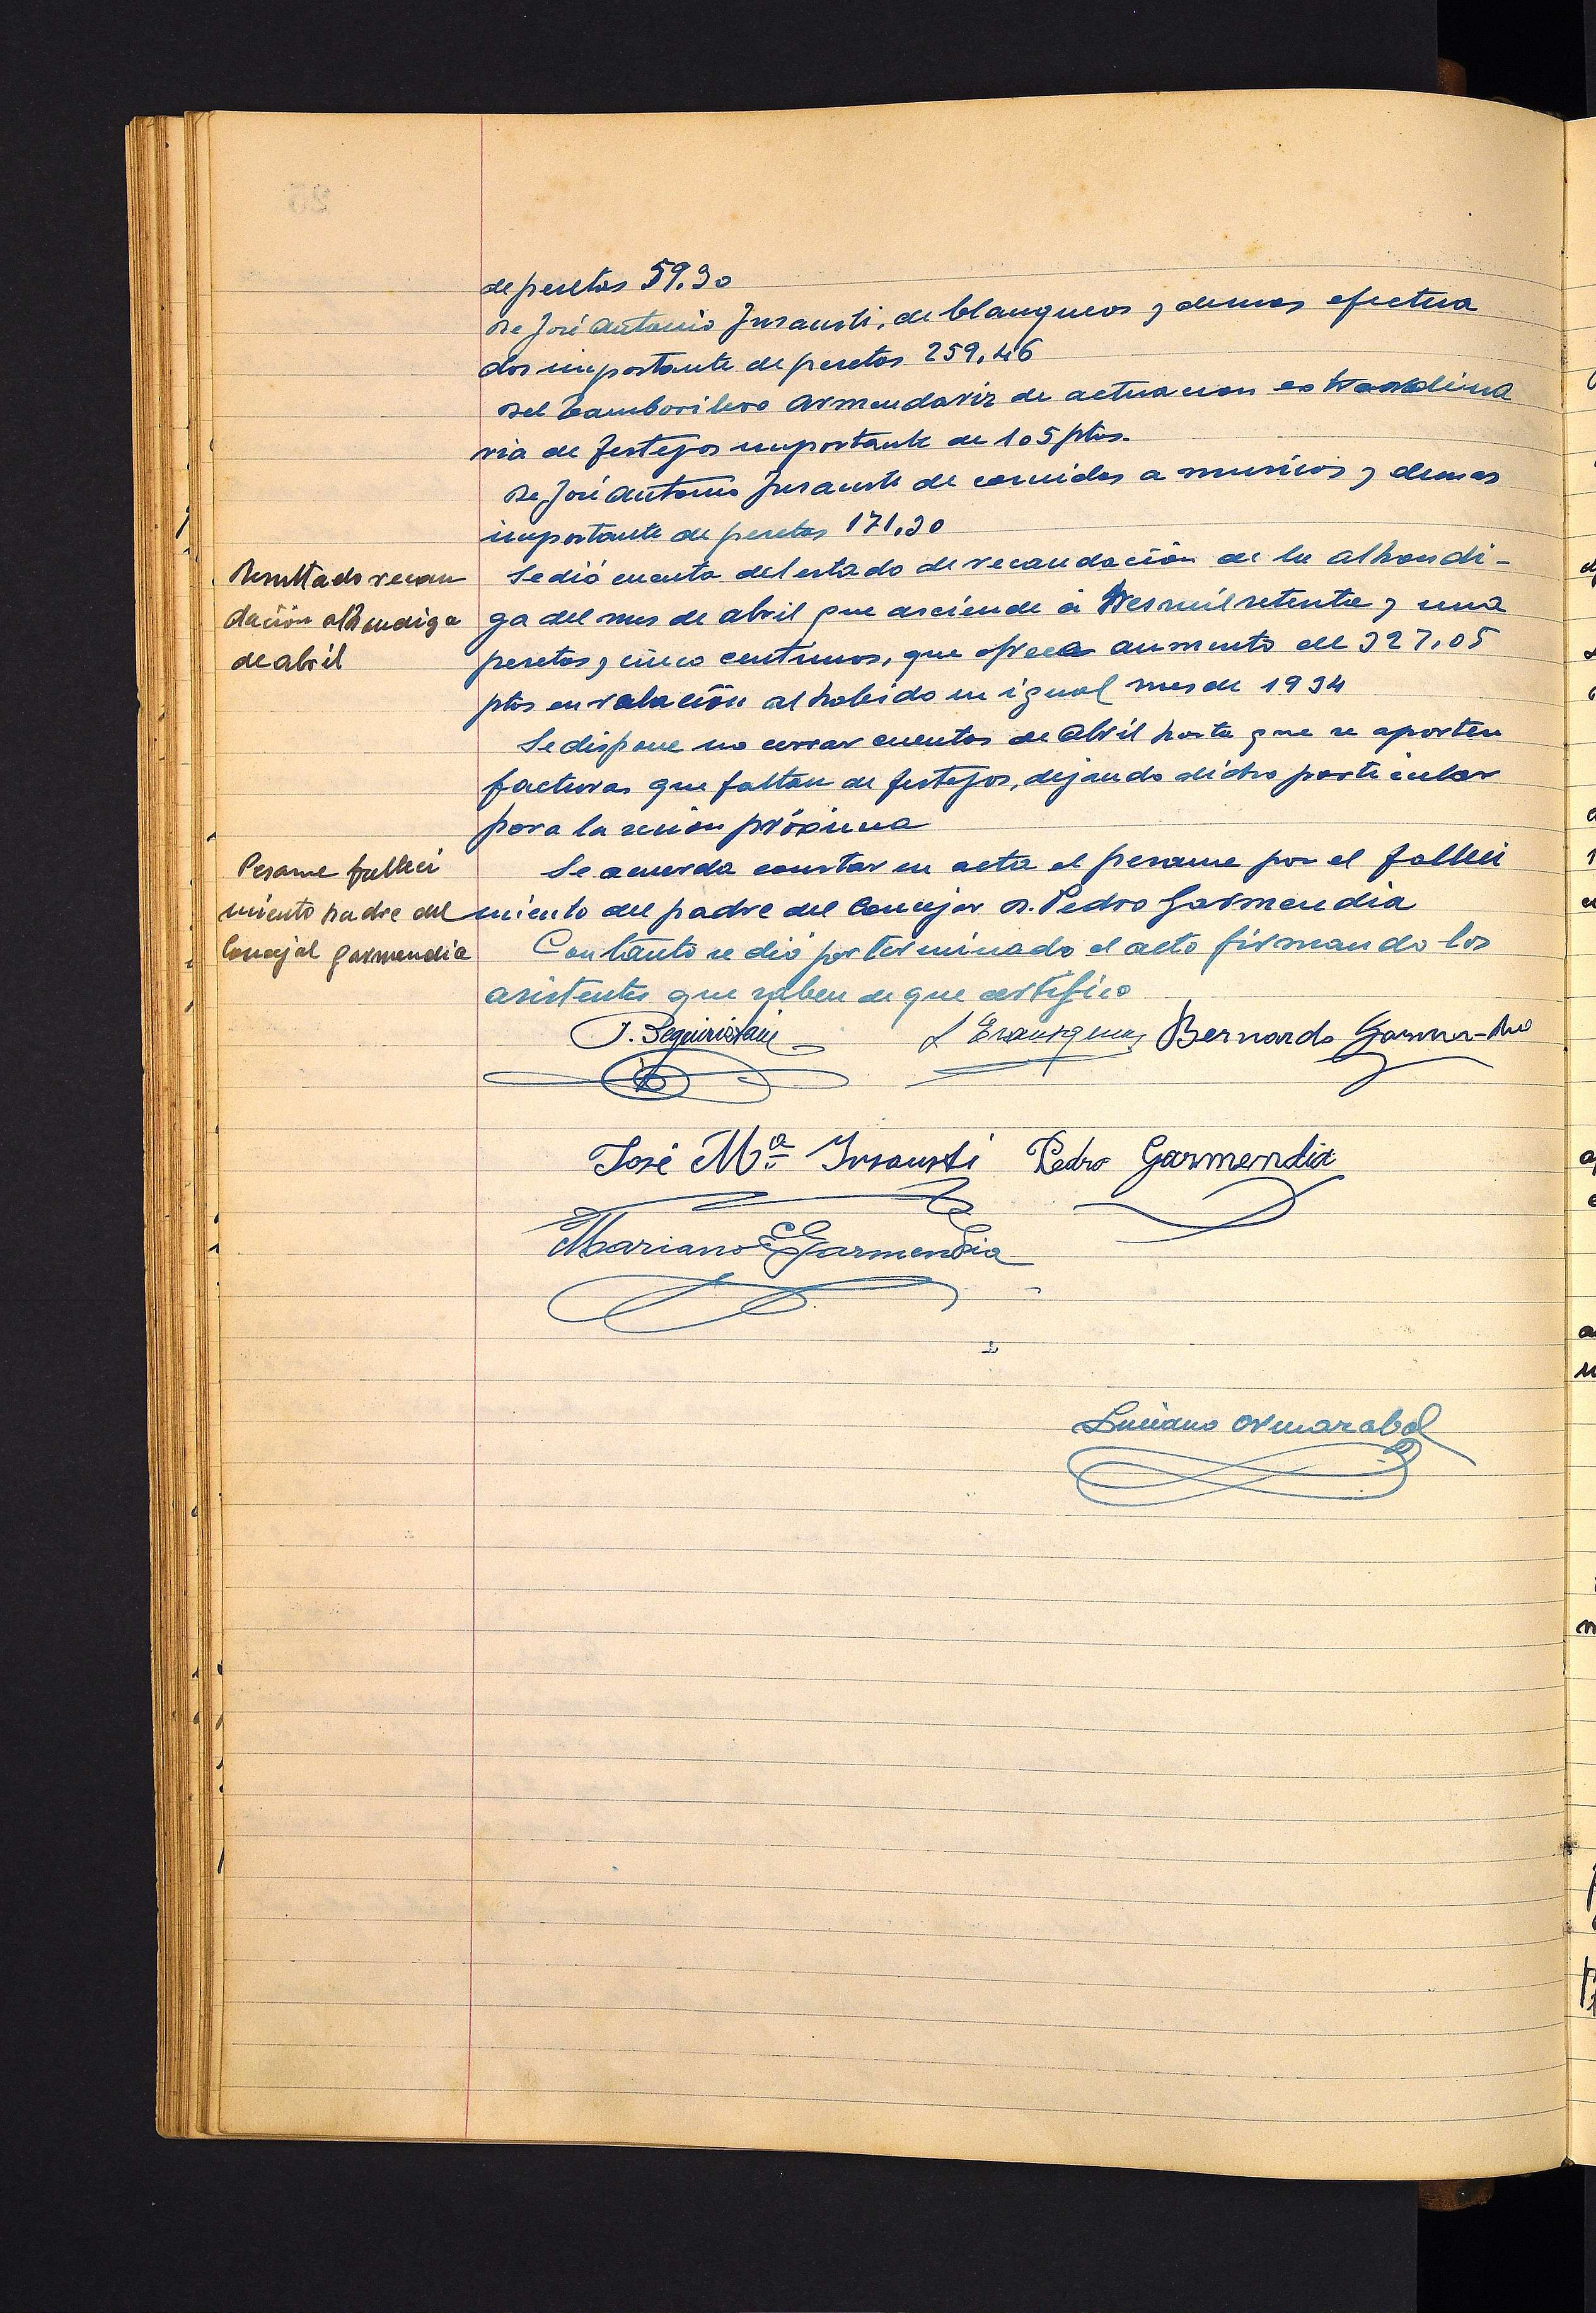 de pesetas 59,30
De José Antonio Insausti, de blanqueos y demas efectua
dos importante de pesetas 259,46
Del tamborilero Armendariz de actuacion extraordina
ria de festejos importante de 105 ptas.
De José Antonio Insausti de comidas a musicos y demas
importante de pesetas 171,30
Resultado recau
dación alhondiga
de abril
Se dió cuenta del estado de recaudación de la alhondi-
ga del mes de abril que asciende á tres mil setenta y una
pesetas y cinco centimos, que ofrece aumento de 327,05
ptas en relación al habido en igual mes de 1934
Se dispone no cerrar cuentas de Abril hasta que se aporten
facturas que faltan de festejos, dejando dicho particular
para la sesion próxima
Pesame falleci
miento padre del
Concejal Garmendia
Se acuerda constar en acta el pesame por el falleci
miento del padre del Concejar D. Pedro Garmendia
Con tanto se dió por terminado el acto firmando los
asistentes que saben de que certifico
J. Beguiristain
Bernardo
José Mª Insausti Pedro Garmendia
Mariano Garmendia
Luciano Ormazabal